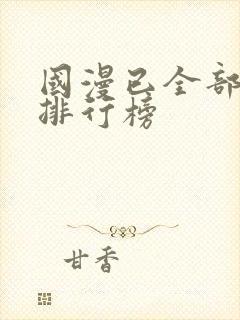 國漫已全部
排行榜
甘香